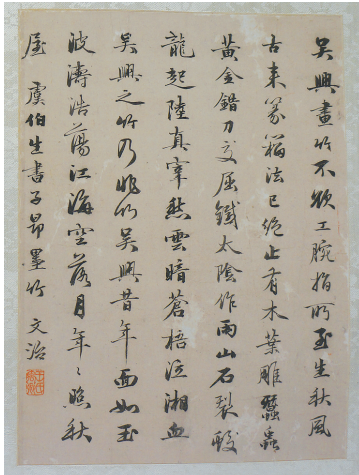 吳興畫竹不欲工腕指所至生秋風
古來篆籀法已絕止有木葉雕蠶蟲
黃金錯刀交屈鐵太陰作雨山石裂蛟
龍起陸真宰愁雲暗蒼梧泣湘血
吳興之竹乃非竹吳興昔年面如玉
波濤浩蕩江海空落月年〻照秋
屋 虞伯生書子昂墨竹 文治